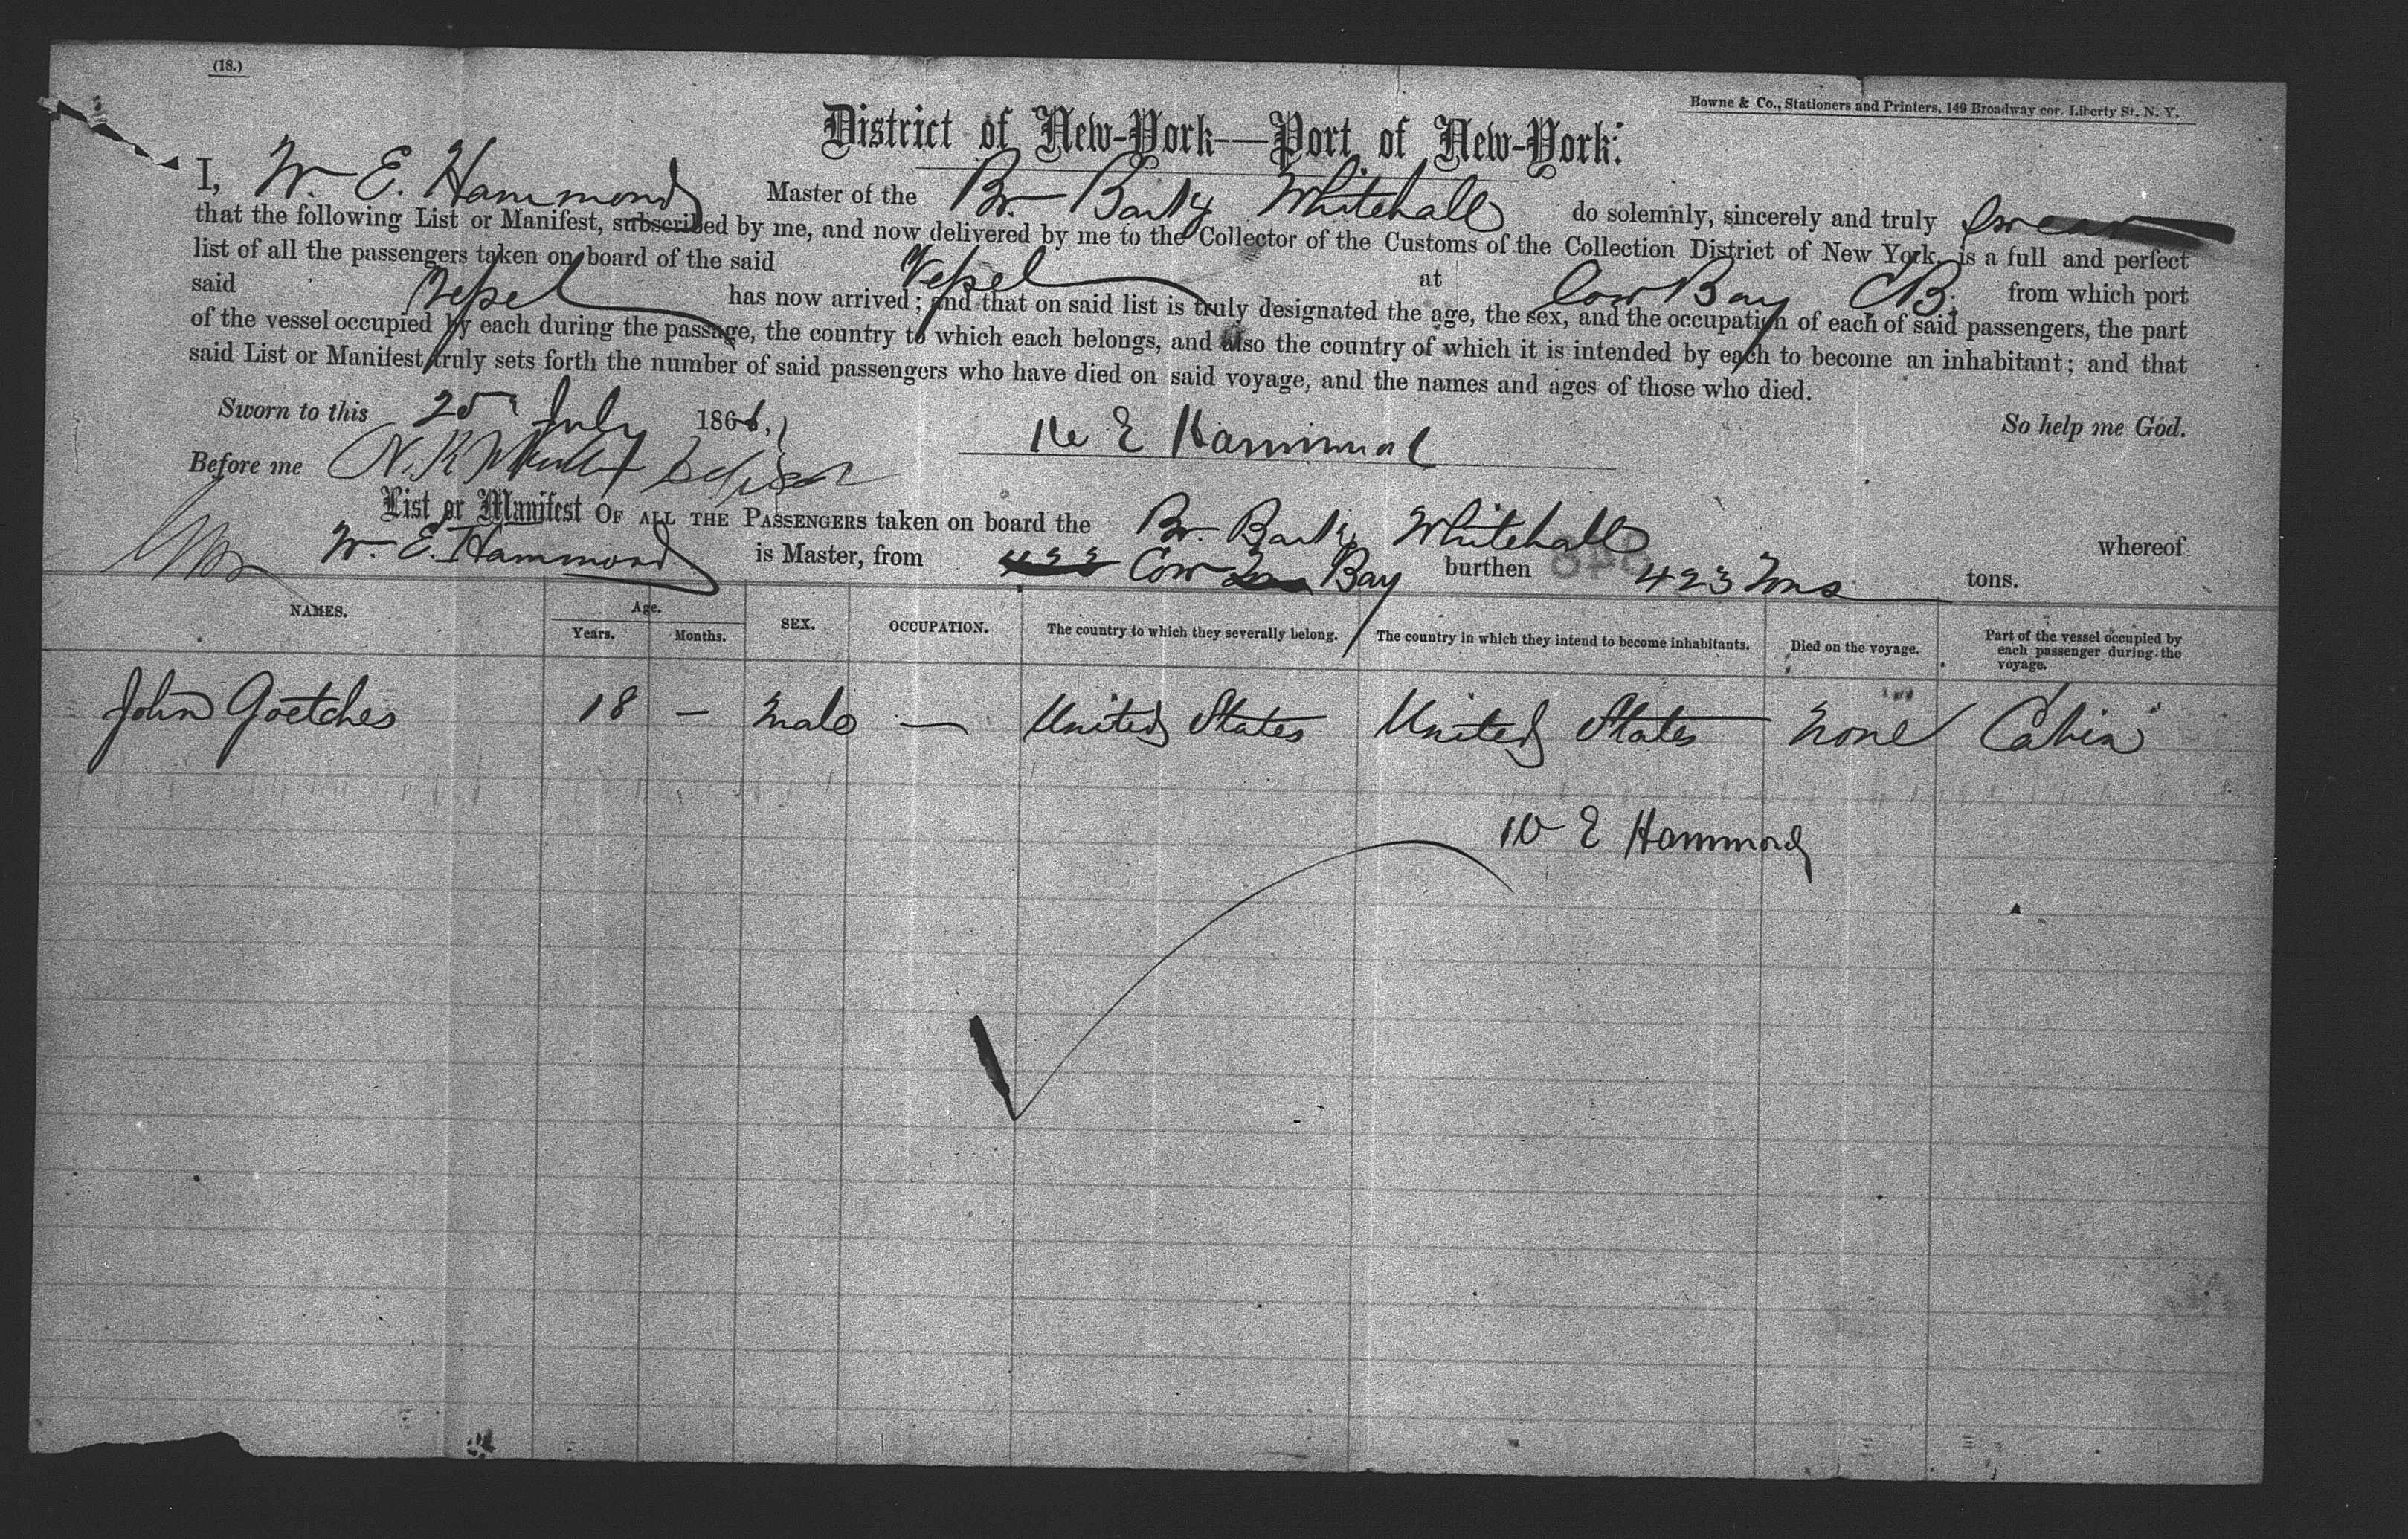 (18.)
Bowne & Co., Stationers and Printers, 149 Broadway cor. Liberty St. N. Y.
District of New-York—Port of New-York:
I, W. E. Hammond Master of the Br. Bark Whitehall do solemnly, sincerely and truly swear
that the following List or Manifest, subscribed by me, and now delivered by me to the Collector of the Customs of the Collection District of New York, is a full and perfect
list of all the passengers taken on board of the said Vessel at Cow Bay CB. from which port
said Vessel has now arrived; and that on said list is truly designated the age, the sex, and the occupation of each of said passengers, the part
of the vessel occupied by each during the passage, the country to which each belongs, and also the country of which it is intended by each to become an inhabitant; and that
said List or Manifest truly sets forth the number of said passengers who have died on said voyage, and the names and ages of those who died.
Sworn to this 25 July 1866, So help me God.
W E Hammond
Before me
List or Manifest OF ALL THE PASSENGERS taken on board the Br. Bark Whitehall whereof
W. E. Hammond is Master, from Cow Bay burthen 423 Tons tons.
NAMES. Age. Years. Months. SEX. OCCUPATION. The country to which they severally belong. The country in which they intend to become inhabitants. Died on the voyage. Part of the vessel occupied by each passenger during the voyage.
John Goetches 18 — Male — United States United States None Cabin
W E Hammond